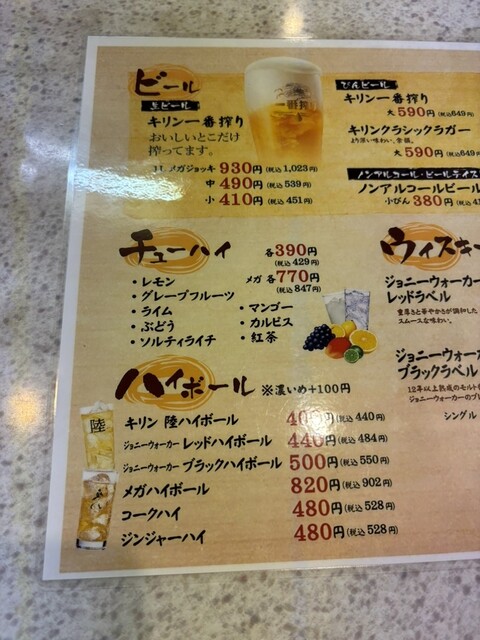 ビール
生ビール
キリン一番搾り
おいしいとこだけ
搾ってます。
1L メガジョッキ 930円(税込1,023円)
中 490円(税込539円)
小 410円(税込451円)
一番搾り
びんビール
キリン一番搾り
大 590円(税込649円)
キリンクラシックラガー
より深い味わい、余韻。
大 590円(税込649
ノンアルコール・ビールテイス
ノンアルコールビール
小びん 380円(税込41
チューハイ
各390円
(税込429円)
メガ 各770円
(税込847円)
・レモン
・グレープフルーツ
・ライム
・ぶどう
・ソルティライチ
・マンゴー
・カルピス
・紅茶
ウィスキー
ジョニーウォーカー
レッドラベル
豊厚さと華やかさが調和した
スムースな味わい。
ジョニーウォーカー
ブラックラベル
12年以上熟成のモルト
ジョニーウォーカーのブレ
シングル
ハイボール ※濃いめ+100円
陸
キリン 陸ハイボール 400円(税込440円)
ジョニーウォーカー レッドハイボール 440円(税込484円)
ジョニーウォーカー ブラックハイボール 500円(税込550円)
メガハイボール 820円(税込902円)
コークハイ 480円(税込528円)
ジンジャーハイ 480円(税込528円)